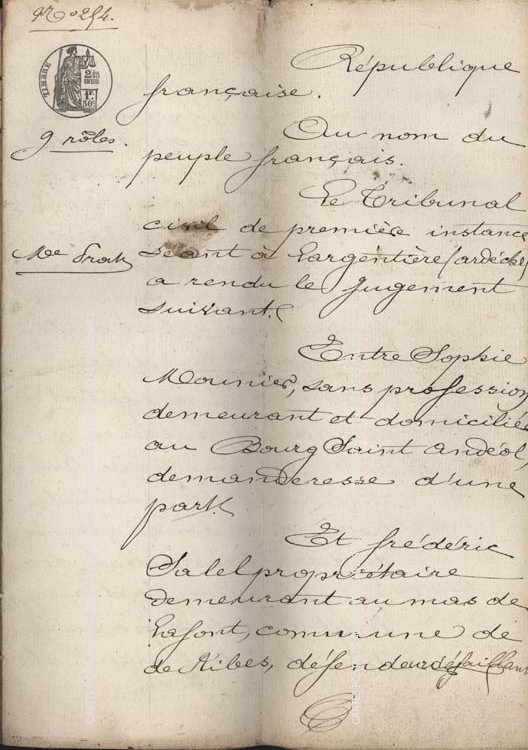 No 254.
TIMBRE
2 DES
EN SUS
1F.
50c
9 rôles.
République
française.
Au nom du
peuple français.
Le Tribunal
civil de première instance
séant à Largentière (ardèche)
Me Prat
a rendu le Jugement
suivant.
Entre Sophie
Mounier, sans profession
demeurant et domiciliée
au Bourg Saint andéol,
demanderesse d'une
part.
Et frédéric
Salel propriétaire
demeurant au mas de
Lafont, commune de
de Ribes, défendeur défaillant